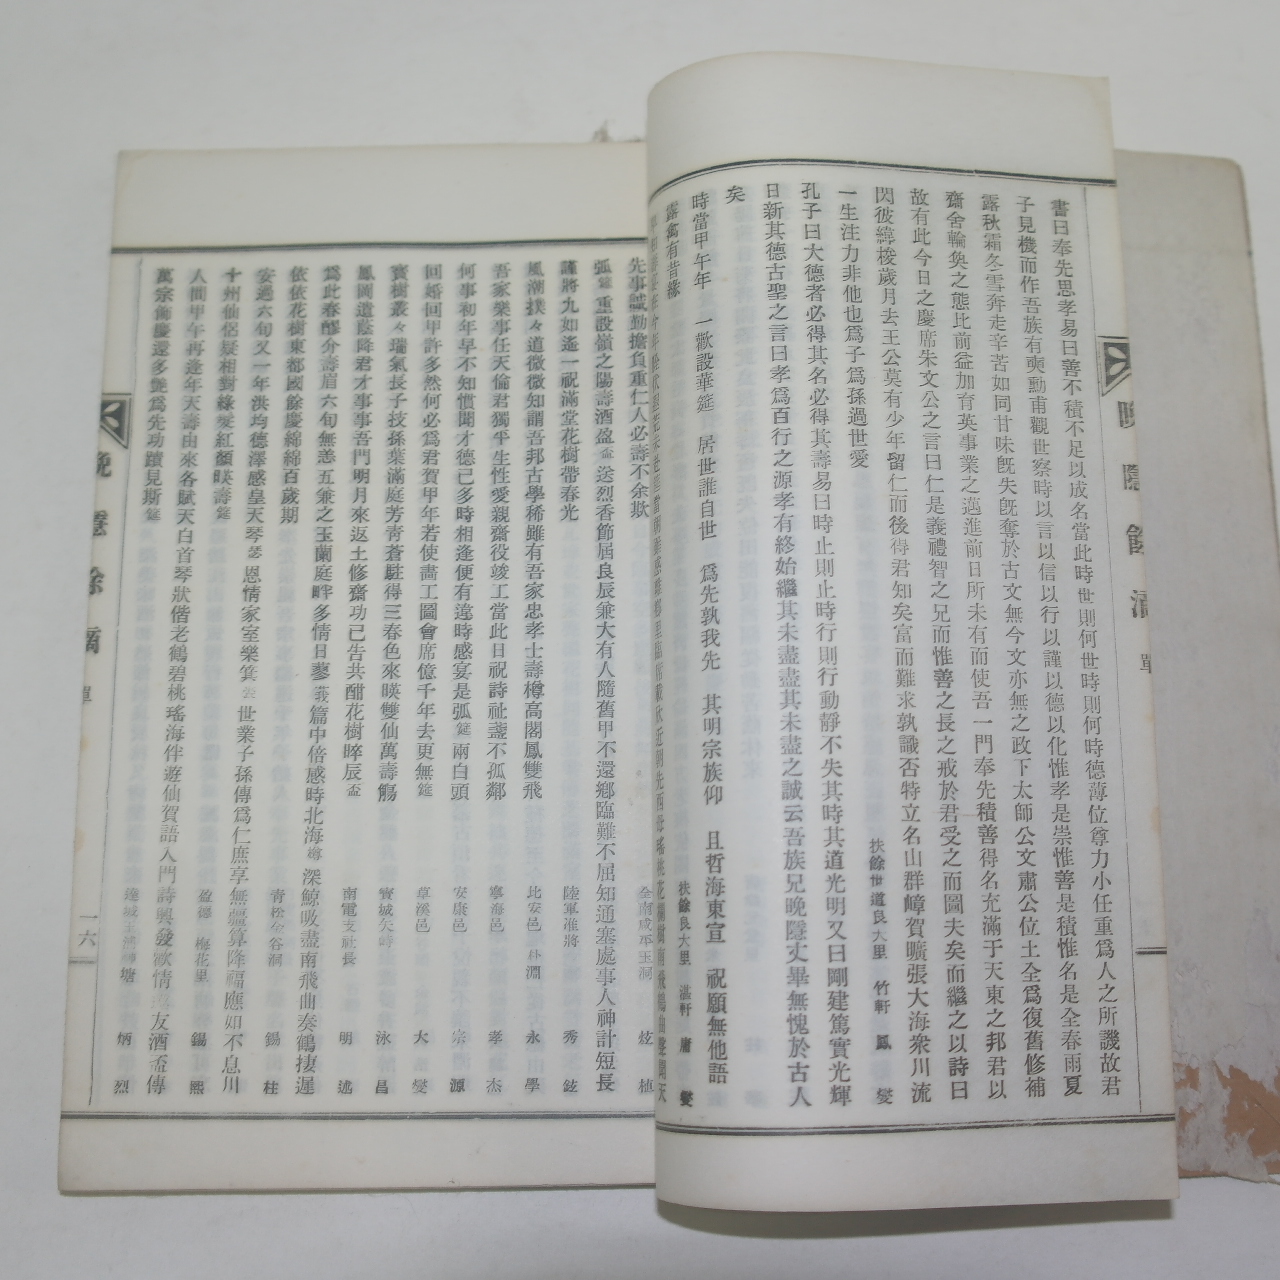 書曰奉先思孝易曰善不積不足以成名當此時世則何世時則何時德薄位尊力小任重爲人之所譏故君
子見機而作吾族有奭勳甫觀世察時以言以信以行以謹以德以化惟孝是崇惟善是積惟名是全春雨夏
露秋霜冬雪奔走辛苦如同甘味旣失旣奪於古文無今文亦無之政下太師公文肅公位土全爲復舊修補
齋舍輪奐之態比前益加育英事業之邁進前日所未有而使吾一門奉先積善得名充滿于天東之邦君以
故有此今日之慶席朱文公之言曰仁是義禮智之兄而惟善之長之戒於君受之而圖夫矣而繼之以詩曰
閃彼緯梭歲月去王公莫有少年留仁而後得君知矣富而難求孰識否特立名山群嶂賀曠張大海衆川流
一生注力非他也爲子爲孫過世愛
扶餘世道良大里 竹軒 鳳燮
孔子曰大德者必得其名必得其壽易曰時止則止時行則行動靜不失其時其道光明又曰剛建篤實光輝
日新其德古聖之言曰孝爲百行之源孝有終始繼其未盡盡其未盡之誠云吾族兄晩隱丈畢無愧於古人
矣
時當甲午年 一歡設華筵 居世誰自世 爲先孰我先 其明宗族仰 且哲海東宣 祝願無他語
露濡有昔緣
扶餘良大里 湛軒 庸燮
晩隱餘滴 單
先事誠勤擔負重仁人必壽不余欺
全南咸平玉洞 炫植
弧筵重設嶺之陽壽酒盈盃送烈香節屆良辰兼大有人隨舊甲不還鄉臨難不屈知通塞處事人神計短長
謹將九如遙一祝滿堂花樹帶春光
陸軍准將 秀鉉
風潮撲々道微微知謂吾邦古學稀雖有吾家忠孝士壽樽高閣鳳雙飛
比安邑 朴淵 永學
吾家樂事任天倫君獨平生性愛親齋役竣工當此日祝詩祉盞不孤鄰
寧海邑 孝杰
何事初年早不知慣聞才德已多時相逢便有違時感宴是弧筵兩白頭
安康邑 宗源
回婚回甲許多然何必爲君賀甲年若使畵工圖會席億千年去更無筵
草溪邑 大燮
寶樹叢々瑞氣長子技孫葉滿庭芳靑蒼駐得三春色來暎雙仙萬壽觴
寶城矢峙 泳昌
鳳岡遺蔭降君才事事吾門明月來返土修齋功已告共酣花樹晬辰盃
南電支社長 明述
爲此春醪介壽眉六旬無恙五兼之玉蘭庭畔多情日蓼莪篇中倍感時北海樽深鯨吸盡南飛曲奏鶴捿遲
依依花樹東都國餘慶綿綿百歲期
靑松金谷洞 錫柱
妄過六旬又一年洪均德澤感皇天琴瑟恩情家室樂箕裘世業子孫傳爲仁庶享無疆算降福應如不息川
十州仙侶疑相對綠髮紅顏暎壽筵
盈德 梅花里 錫熙
人間甲午再逢年天壽由來各賦天白首琴狀偕老鶴碧桃瑤海伴遊仙賀語入門詩興發歡情友酒盃傳
萬宗飾慶還多艶爲先功蹟見斯筵
達城 塘 炳烈
晩隱餘滴 單
一六